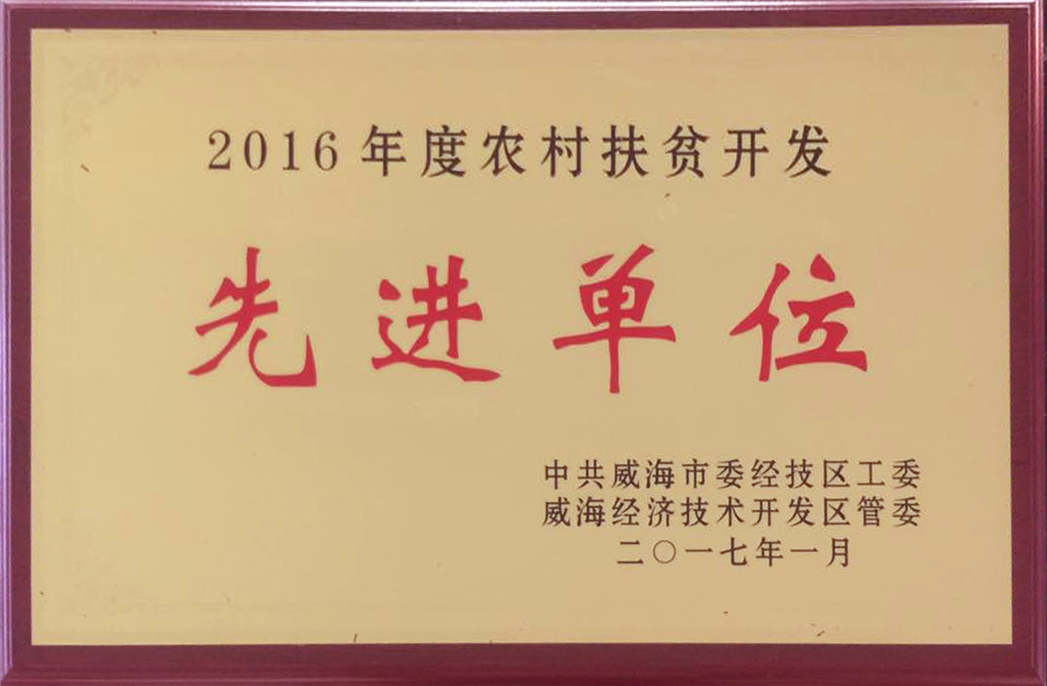 2016年度农村扶贫开发
先进单位
中共威海市委经技区工委
威海经济技术开发区管委
二〇一七年一月